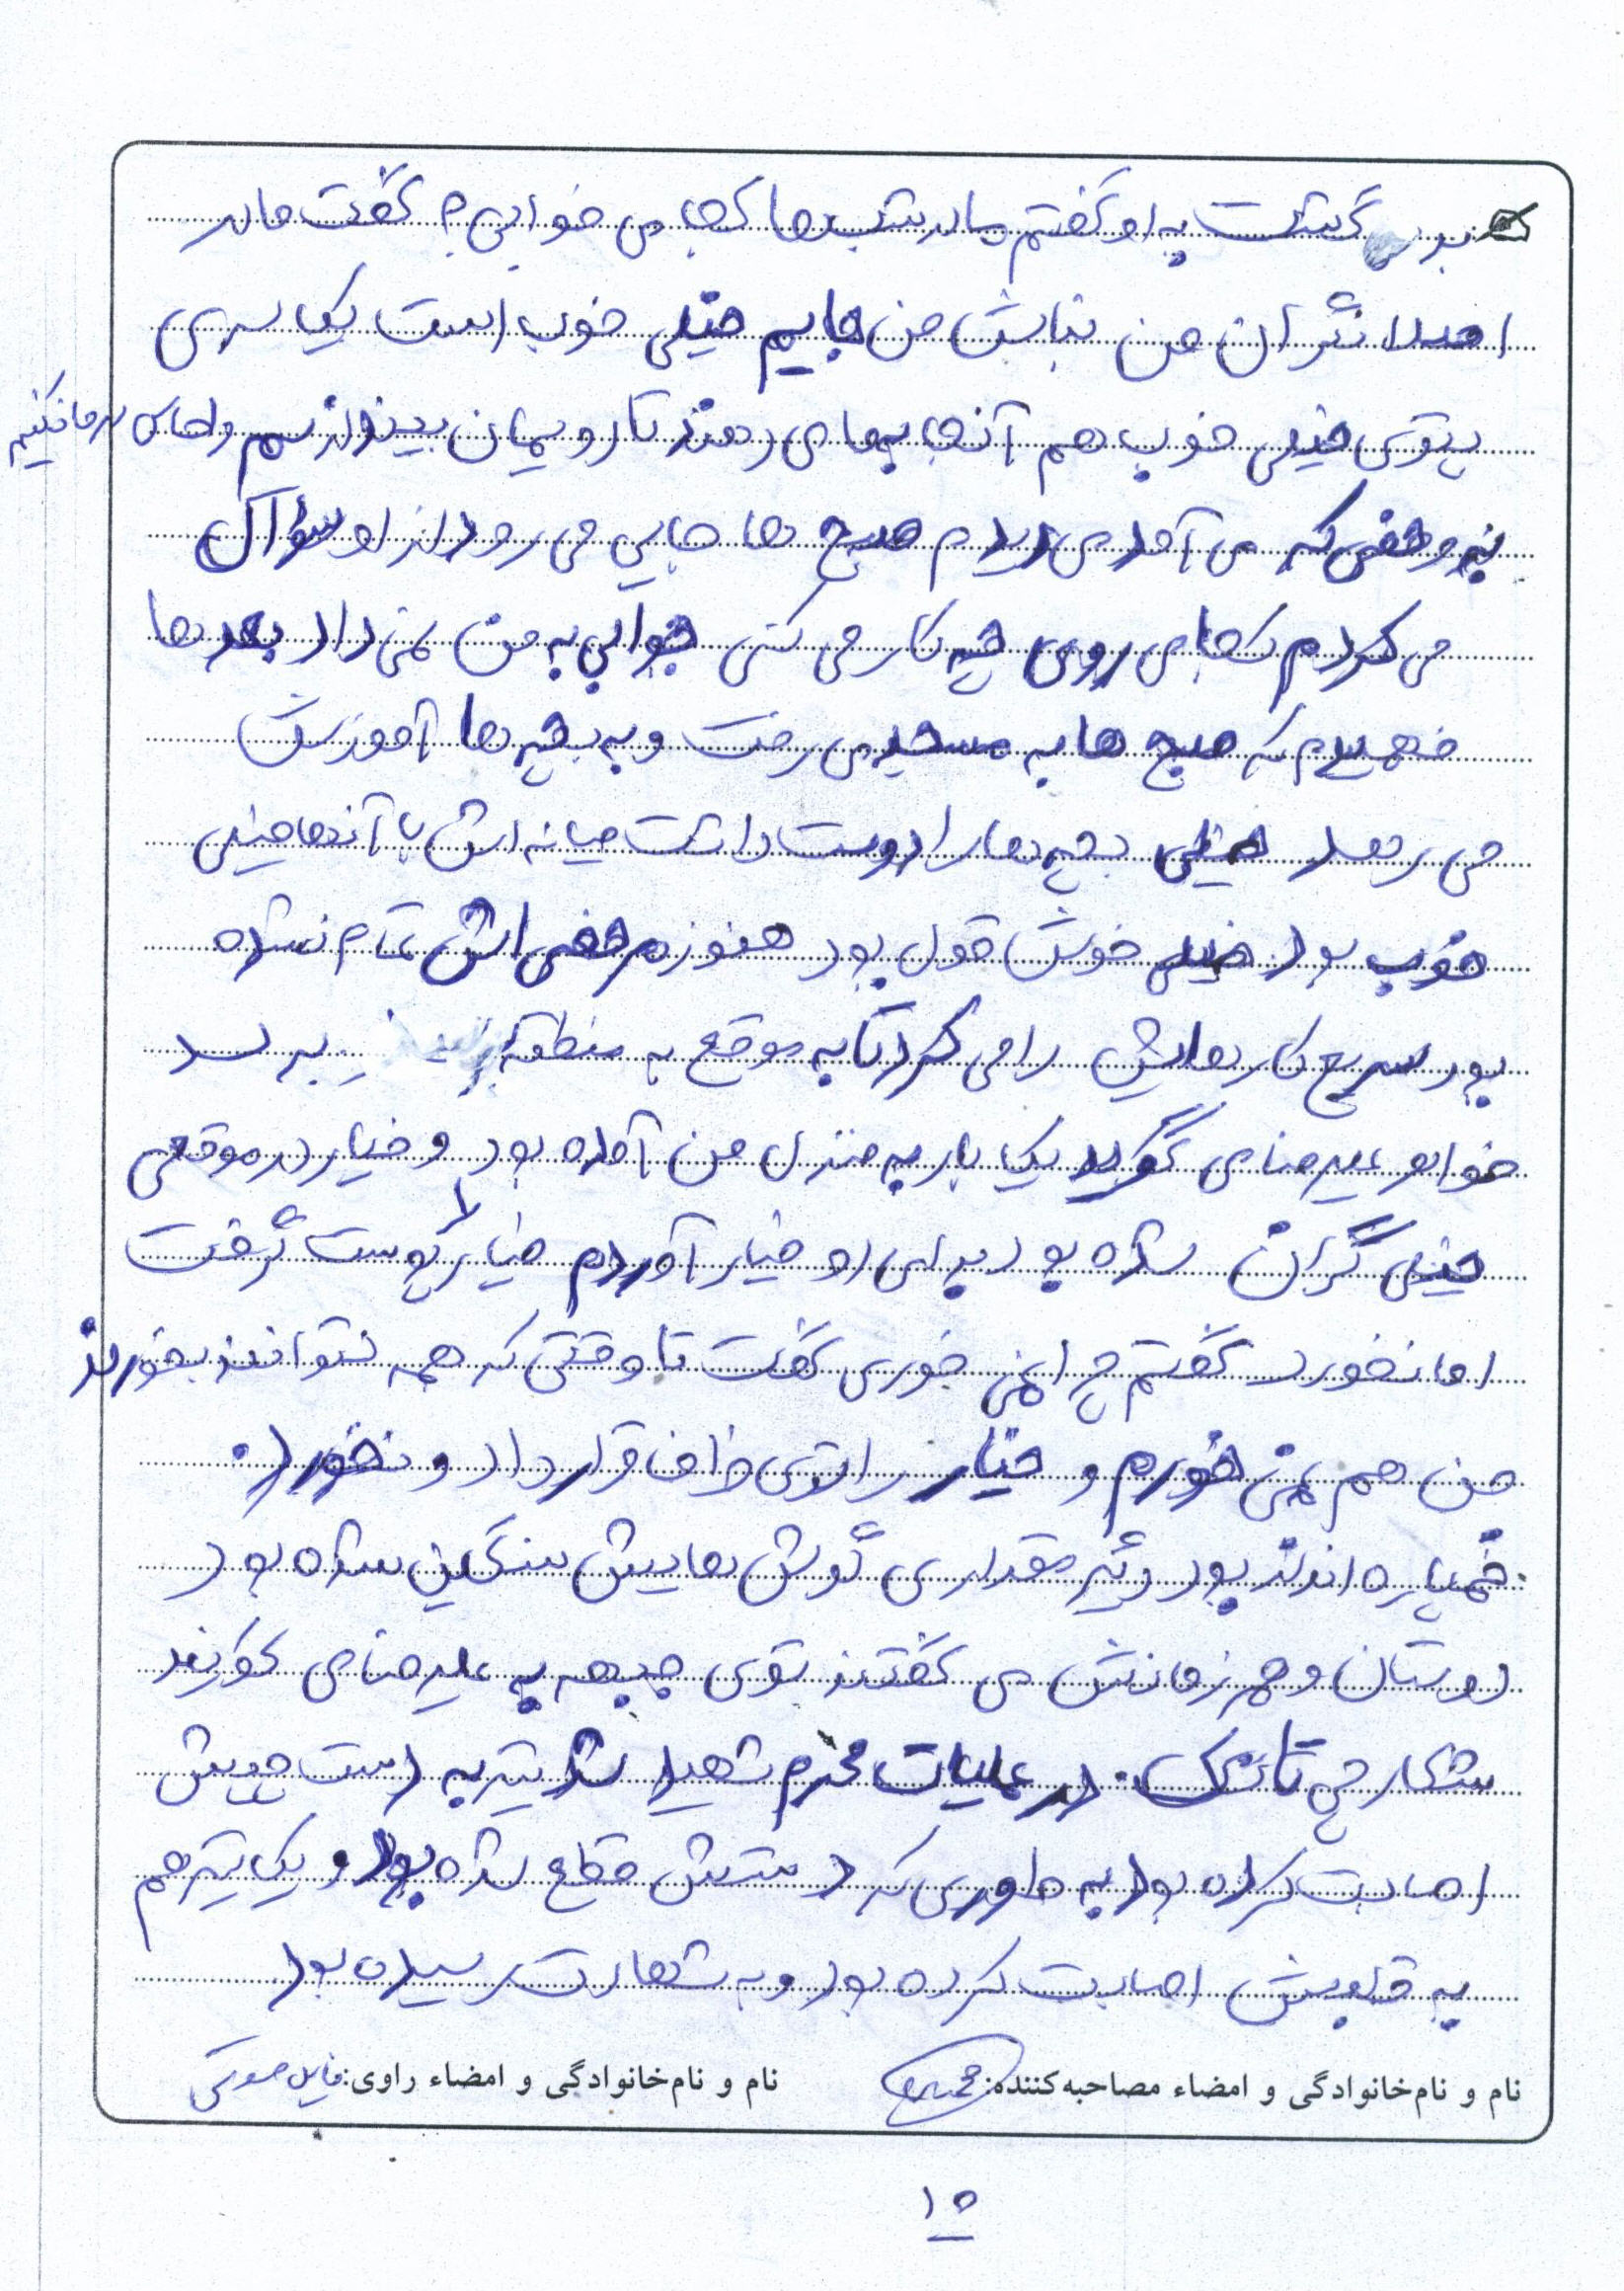 بر گشت به او گفتم مادر شب ها کجا می خوابی؟ گفت مادر
اصلا نگران من نباش من جایم خیلی خوب است یک سری
پتوی خیلی خوب هم آنجا به ما می دهند تا رویمان بیندازیم و احساس سرما نکنیم
که می آمد می دیدم صبح ها جایی می رود از او سؤال
می کردم کجا می روی چه کار می کنی جوابی به من نمی داد بعدها
فهمیدم که صبح ها به مسجد می رفت و به بچه ها آموزش
می دهد خیلی بچه ها را دوست داشت میانه اش با آنها خیلی
خوب بود خیلی خوش قول بود هنوز مرخصی اش تمام نشده
بود سریع کارهایش را می کرد تا به موقع به منطقه به رسد
خواهر علیرضا می گوید یک بار به منزل من آمده بود و خیار در موقعی
خیلی گران شده بود برای او خیار آوردم خیار را پوست گرفت
اما نخورد گفتم چرا نمی خوری گفت تا وقتی که همه نتوانند بخورند
من هم نمی خورم و خیار را توی ظرف قرار داد و نخورد.
خمپاره انداز بود و نیز مقداری گوش هایش سنگین شده بود
دوستان و همرزمانش می گفتند توی جبهه به علیرضا می گویند
شکارچی تانک. در عملیات محرم شهید شد تیر به دست چپش
اصابت کرده بود به طوری که دستش قطع شده بود و یک تیر هم
به قلبش اصابت کرده بود و به شهادت رسیده بود
نام و نام‌خانوادگی و امضاء مصاحبه‌کننده: نام و نام‌خانوادگی و امضاء راوی:
۱۵